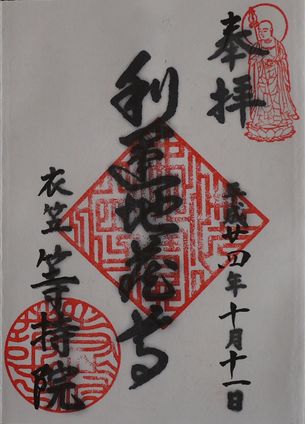 奉拝
平成廿四年十月十一日
利運地蔵尊
衣笠 等持院